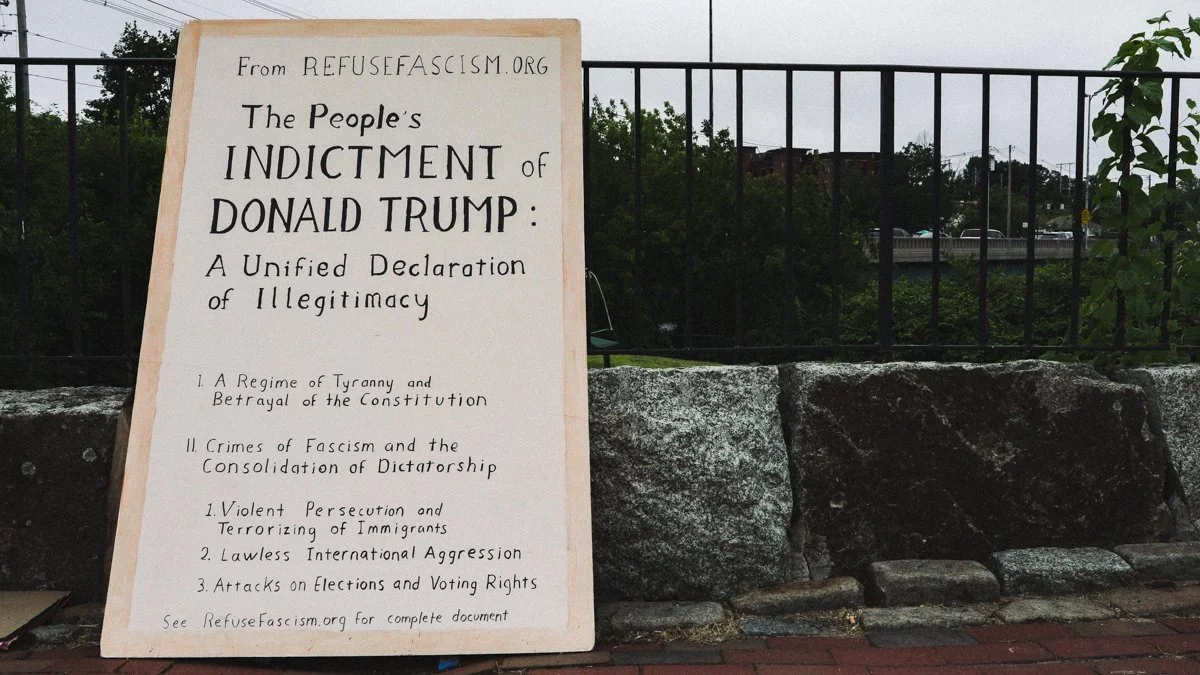 From REFUSEFASCISM.ORG
The People's
INDICTMENT of
DONALD TRUMP:
A Unified Declaration
of Illegitimacy
I. A Regime of Tyranny and
Betrayal of the Constitution
II. Crimes of Fascism and the
Consolidation of Dictatorship
1. Violent Persecution and
Terrorizing of Immigrants
2. Lawless International Aggression
3. Attacks on Elections and Voting Rights
See RefuseFascism.org for complete document